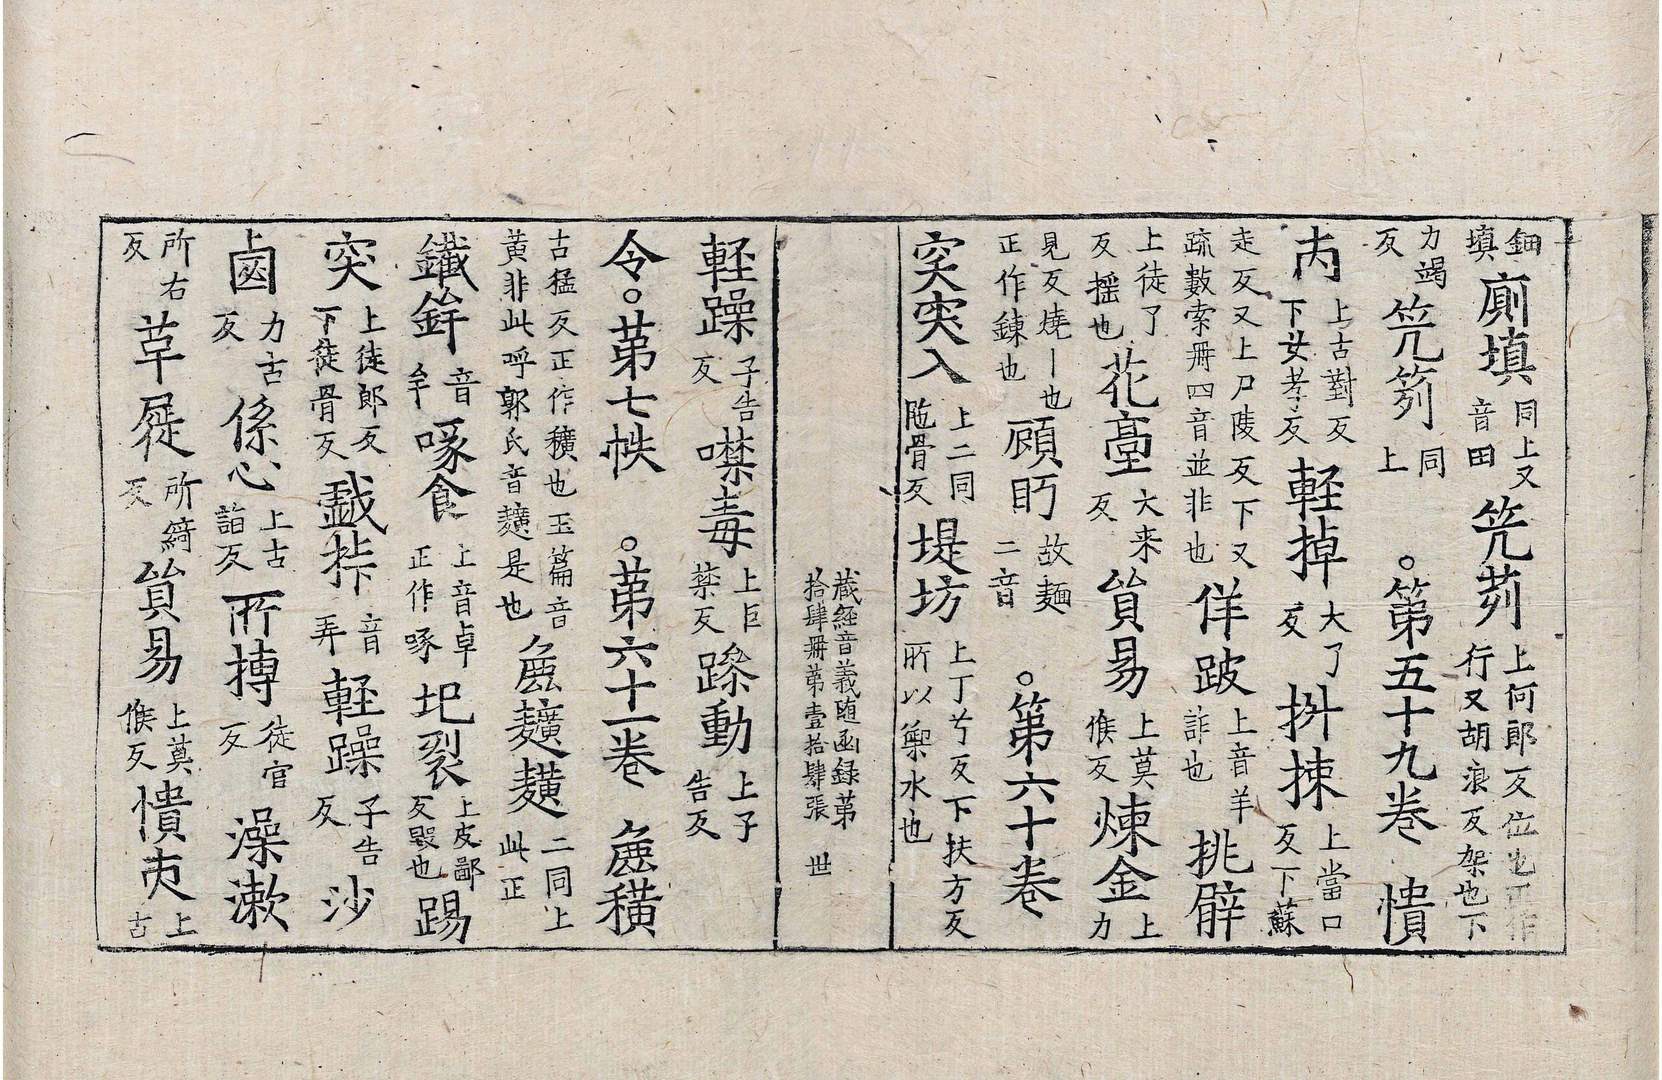 鈿填廁填同上又音田笐茢上何郎反位也正作行又胡浪反架也下
力竭反笐茢同上 。第五十九卷 憒
丙上古對反下女孝反輕掉大了反抖揀上當口反下蘇
走反又上尸陵反下又疏數索冊四音並非也佯跛上音羊詐也挑擗
上徒了反摇也花臺大来反貿易上莫候反煉金上力
見反燒丨也正作鍊也顧眄故麺二音 。第六十卷
突突入上二同陁骨反堤坊上丁兮反下扶方反所以禦水也
藏经音義随函録第
拾肆冊第壹拾肆張 世
輕躁子告反噤毒上巨禁反躁動上子告反
令。第七帙 。第六十一卷 麁穬
古猛反正作穬也玉篇音黄非此呼郭氏音䵃是也麁䵃䵃二同上此正
鐵鉾音牟啄食上音卓正作啄圯裂上皮鄙反毀也踢
突上徒郎反下徒骨反戲挵音弄輕躁子告反沙
鹵力古反係心上古詣反所摶徒官反澡漱上
所右反草屣所綺反貿易上莫候反憒吏上古